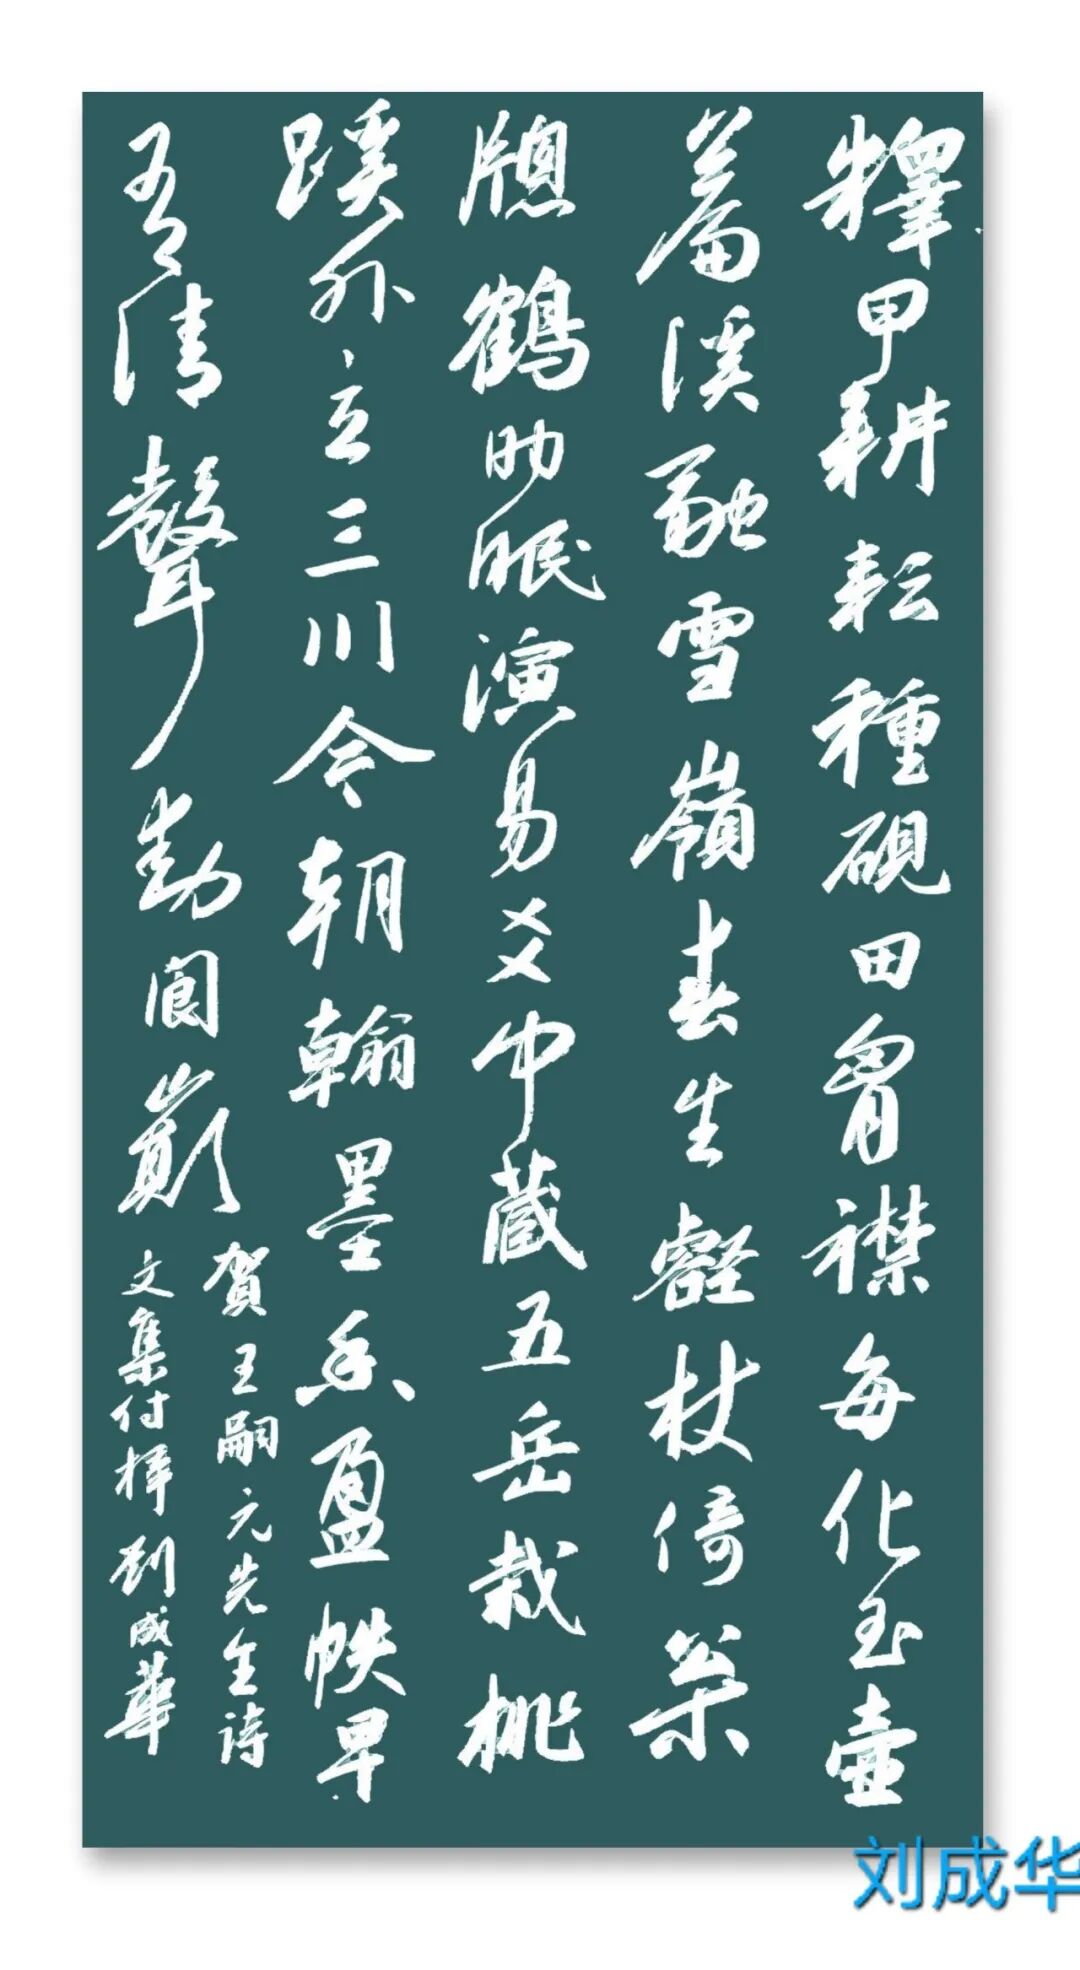 釋甲耕耘種硯田胷襟每化玉壺
篇溪融雪嶺春生壑杖倚
牕鶴助眠演易爻中藏五岳栽桃
蹊外立三川今朝翰墨香盈帙早
有清聲動閬巔
賀王嗣元先生詩
文集付梓 劉成華
刘成华